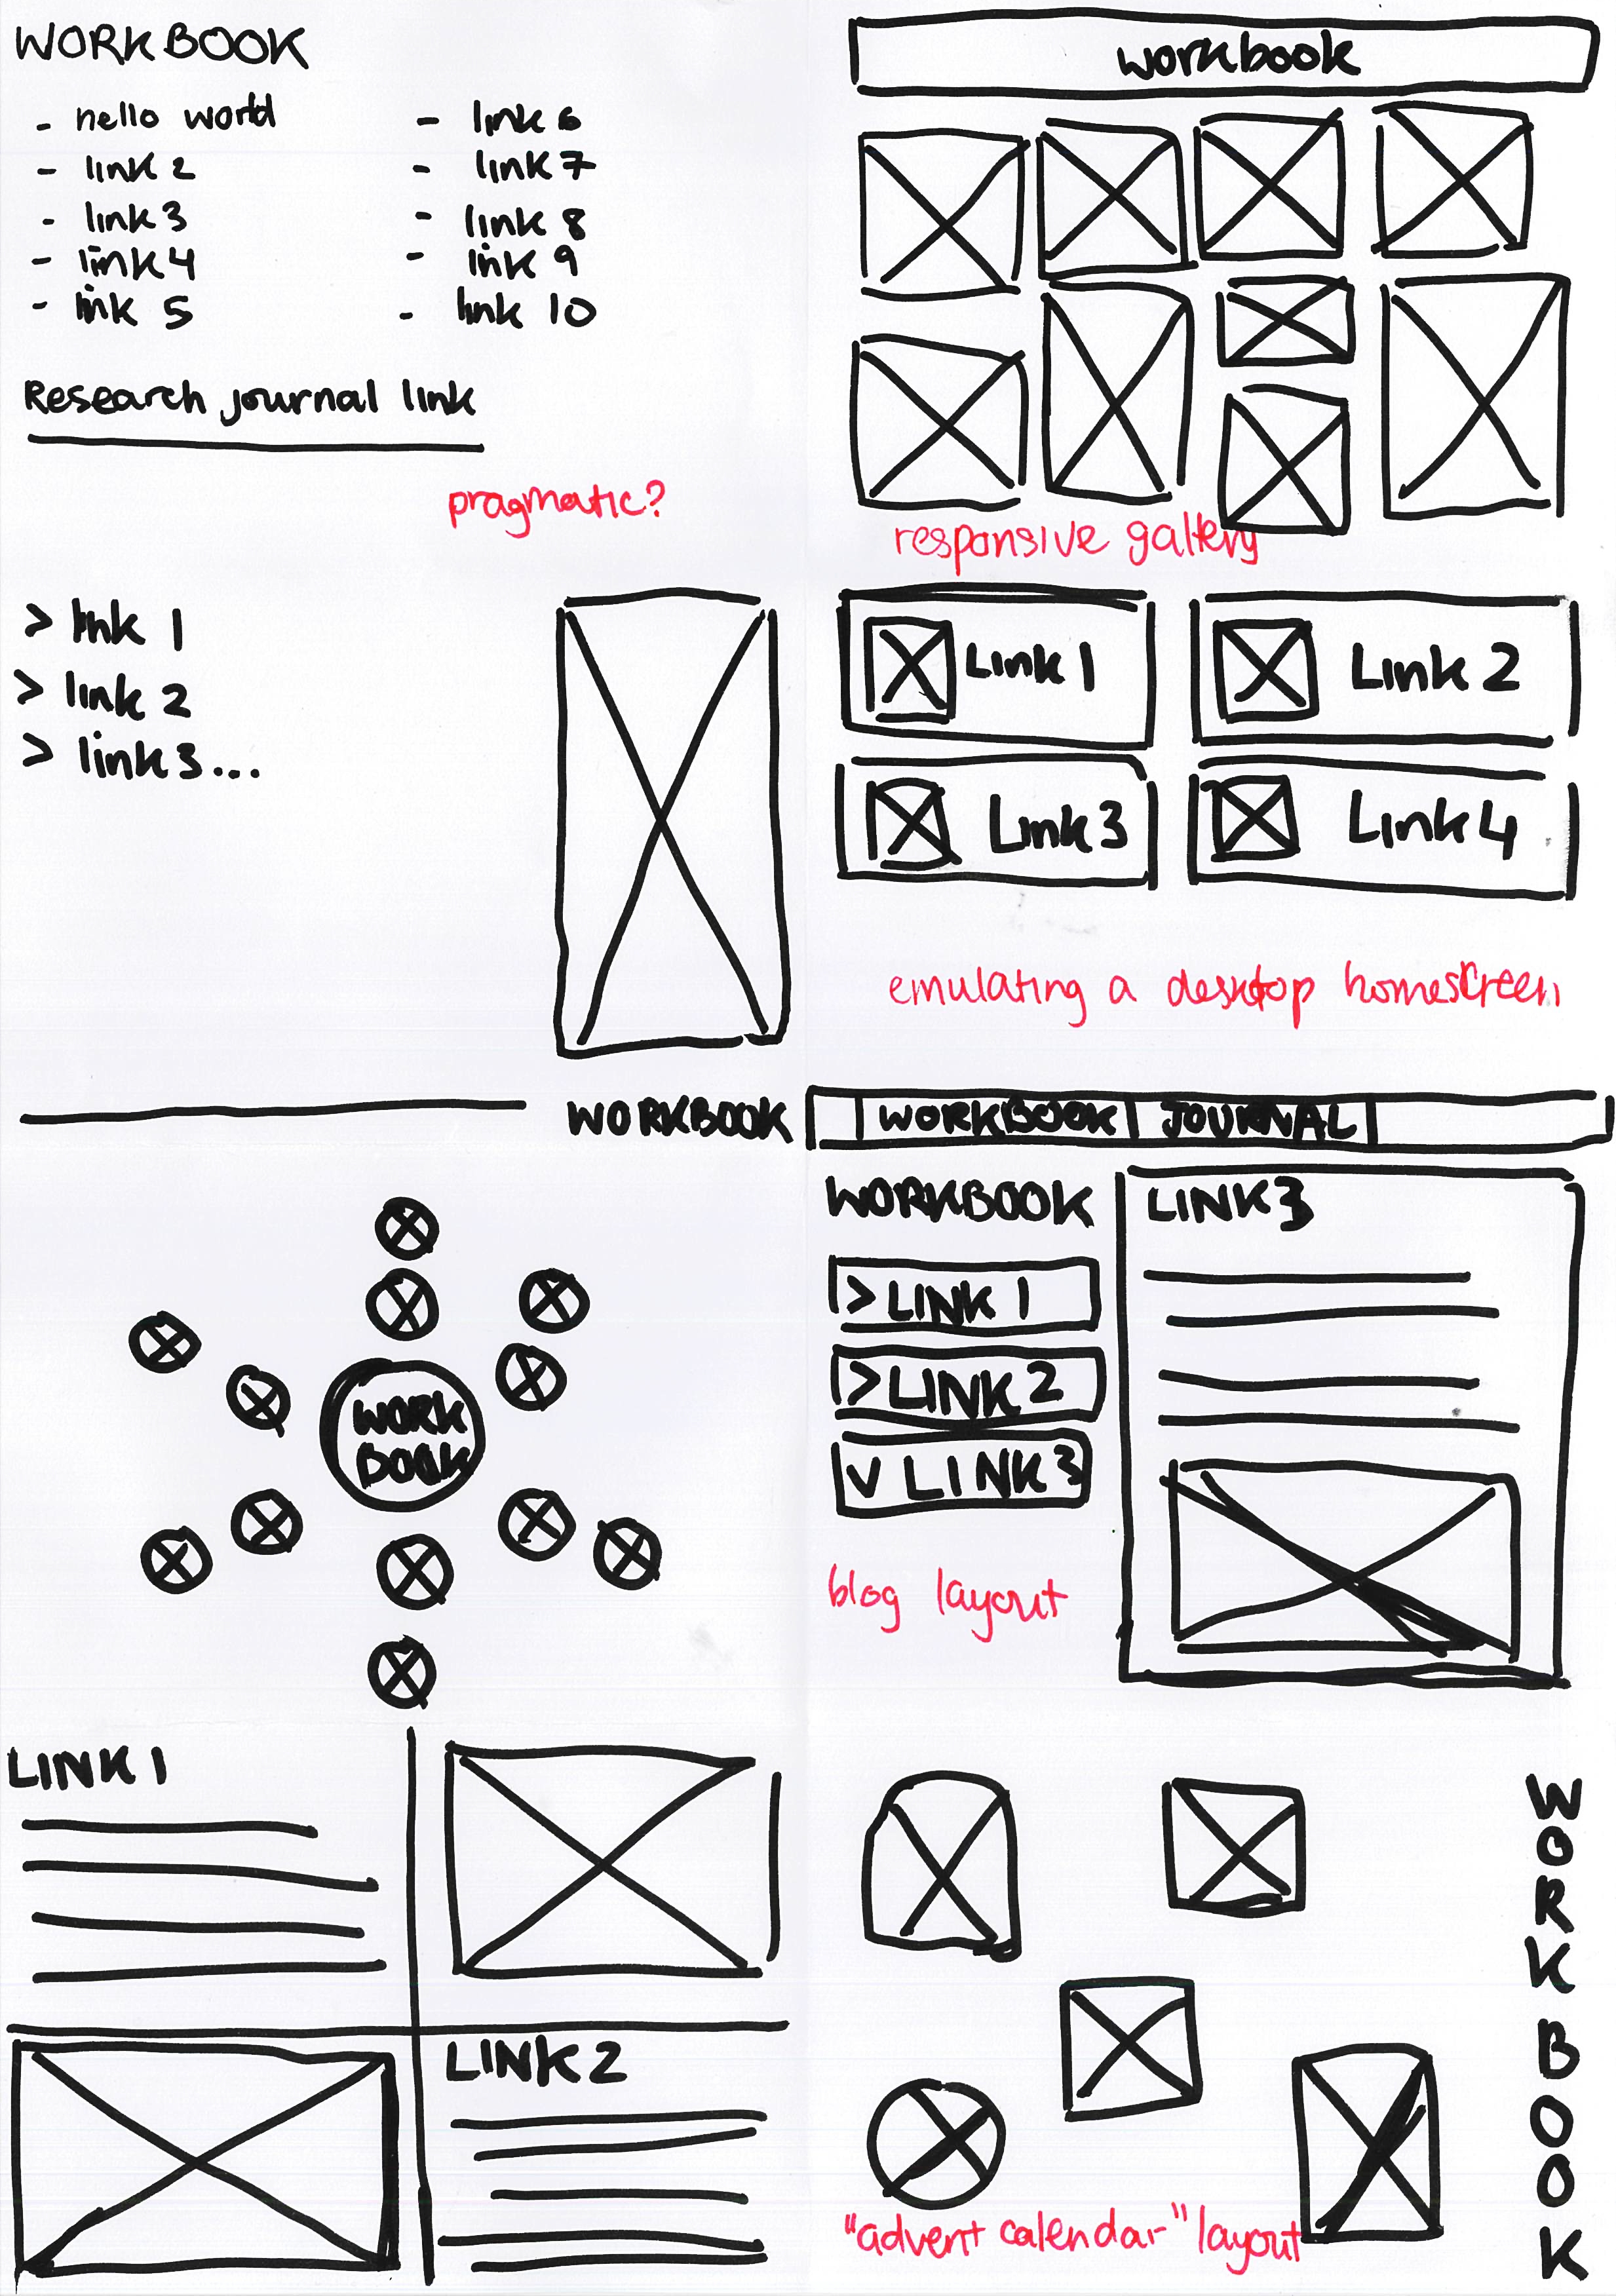 WORKBOOK
- hello world
- link 2
- link 3
- link 4
- link 5
- link 6
- link 7
- link 8
- link 9
- link 10
Research journal link
pragmatic?
workbook
responsive gallery
> link 1
> link 2
> link 3...
WORKBOOK
Link 1
Link 2
Link 3
Link 4
emulating a desktop homescreen
WORK
BOOK
WORKBOOK
JOURNAL
WORKBOOK
> LINK 1
> LINK 2
V LINK 3
LINK 3
blog layout
LINK 1
LINK 2
WORKBOOK
"advent calendar" layout